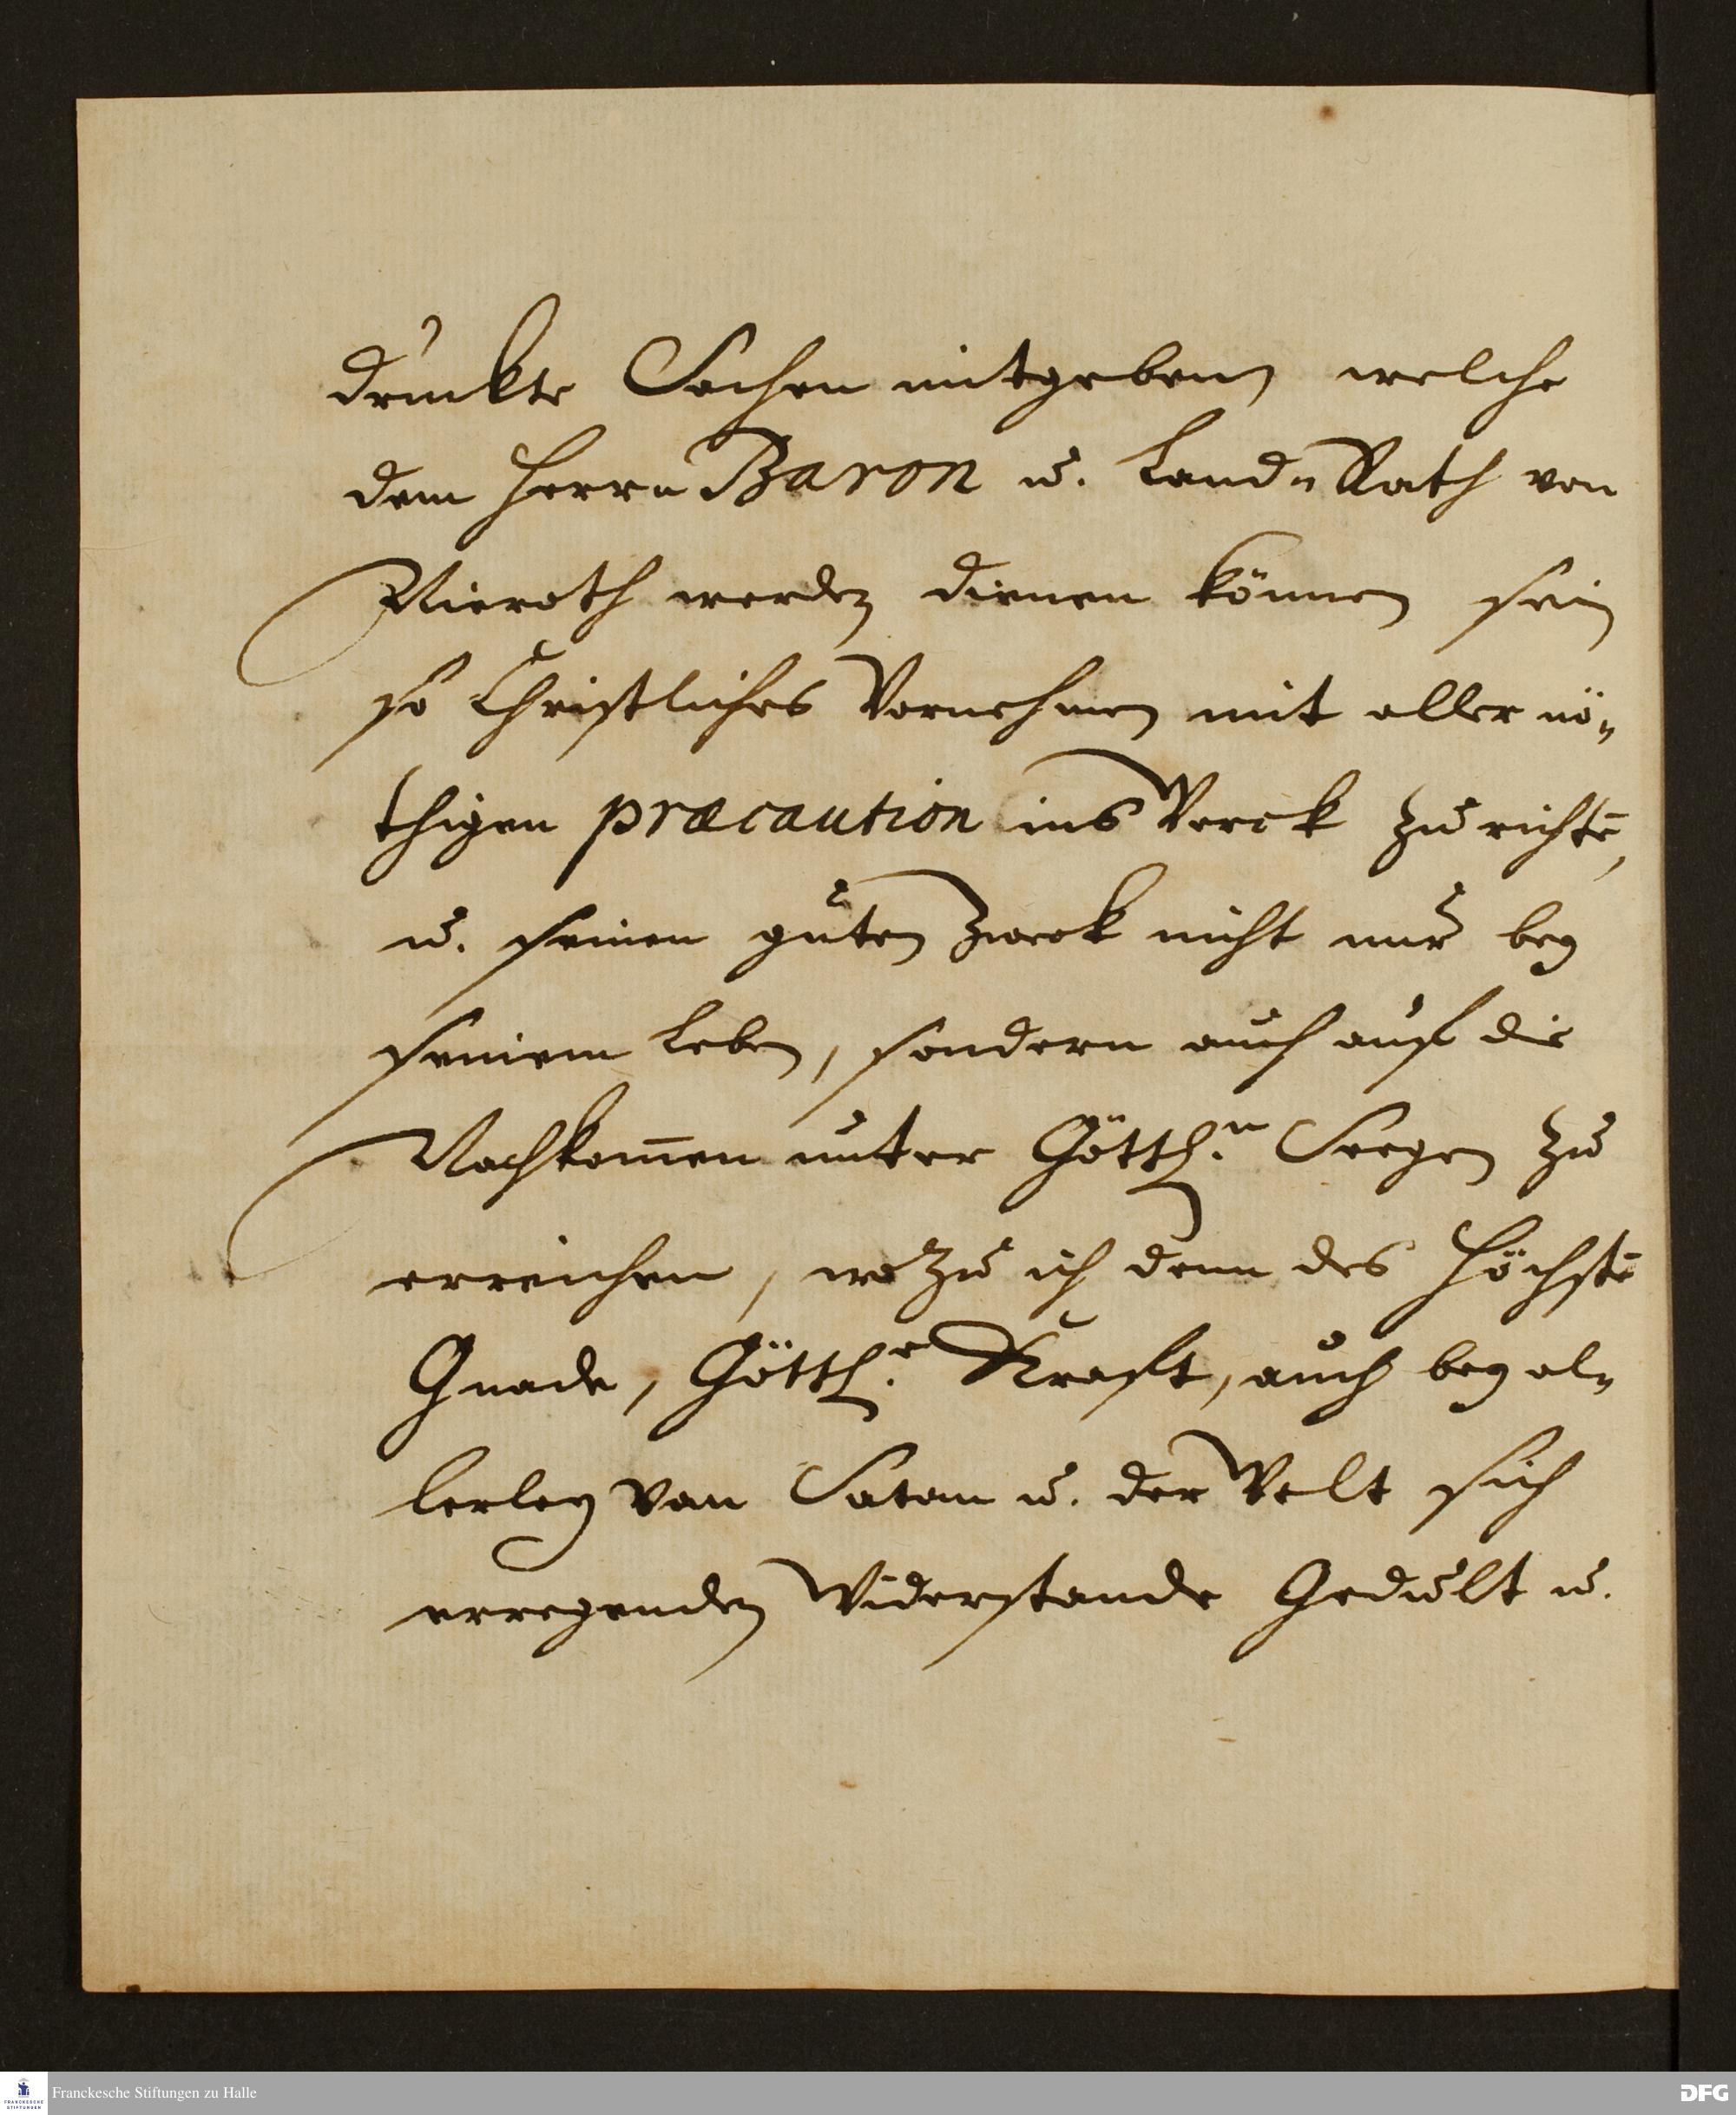 druckte Sachen mitgeben, welche
dem Herrn Baron u. Land-Rath von
Nieroth werden dienen können sein
so Christliches Vornehmen mit aller nö-
thigen præcaution ins Werck zu richtē,
u. seinen guten Zweck nicht nur bey
seinem Leben, sondern auch auf die
Nachkom̄en unter Göttl.n Seegen zu
erreichen, wozu ich denn des Höchstē
Gnade, Göttl.e Krafft, auch bey al-
lerley von Satan u. der Welt sich
erregenden Widerstande Gedult u.
Franckesche Stiftungen zu Halle
FRANCKESCHE STIFTUNGEN
DFG